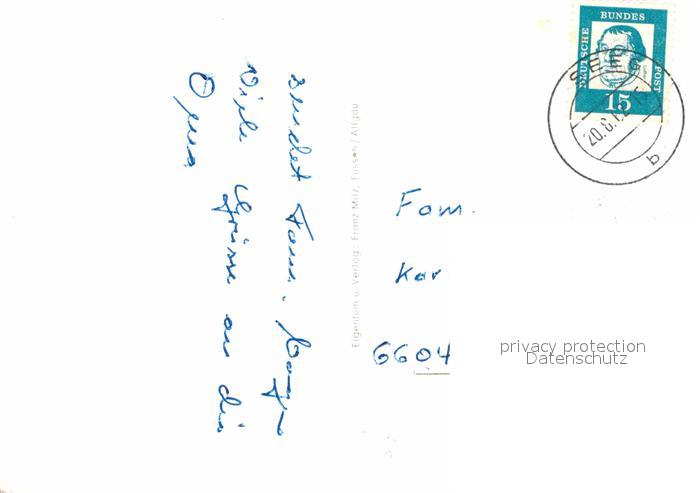 Viele Grüsse an die
Oma
sendet Fam.
Eigentum u. Verlag: Franz Milz, Füssen/Allgäu
Fam.
Kar
6604
DEUTSCHE
BUNDES
POST
15
SEEG
b
privacy protection
Datenschutz